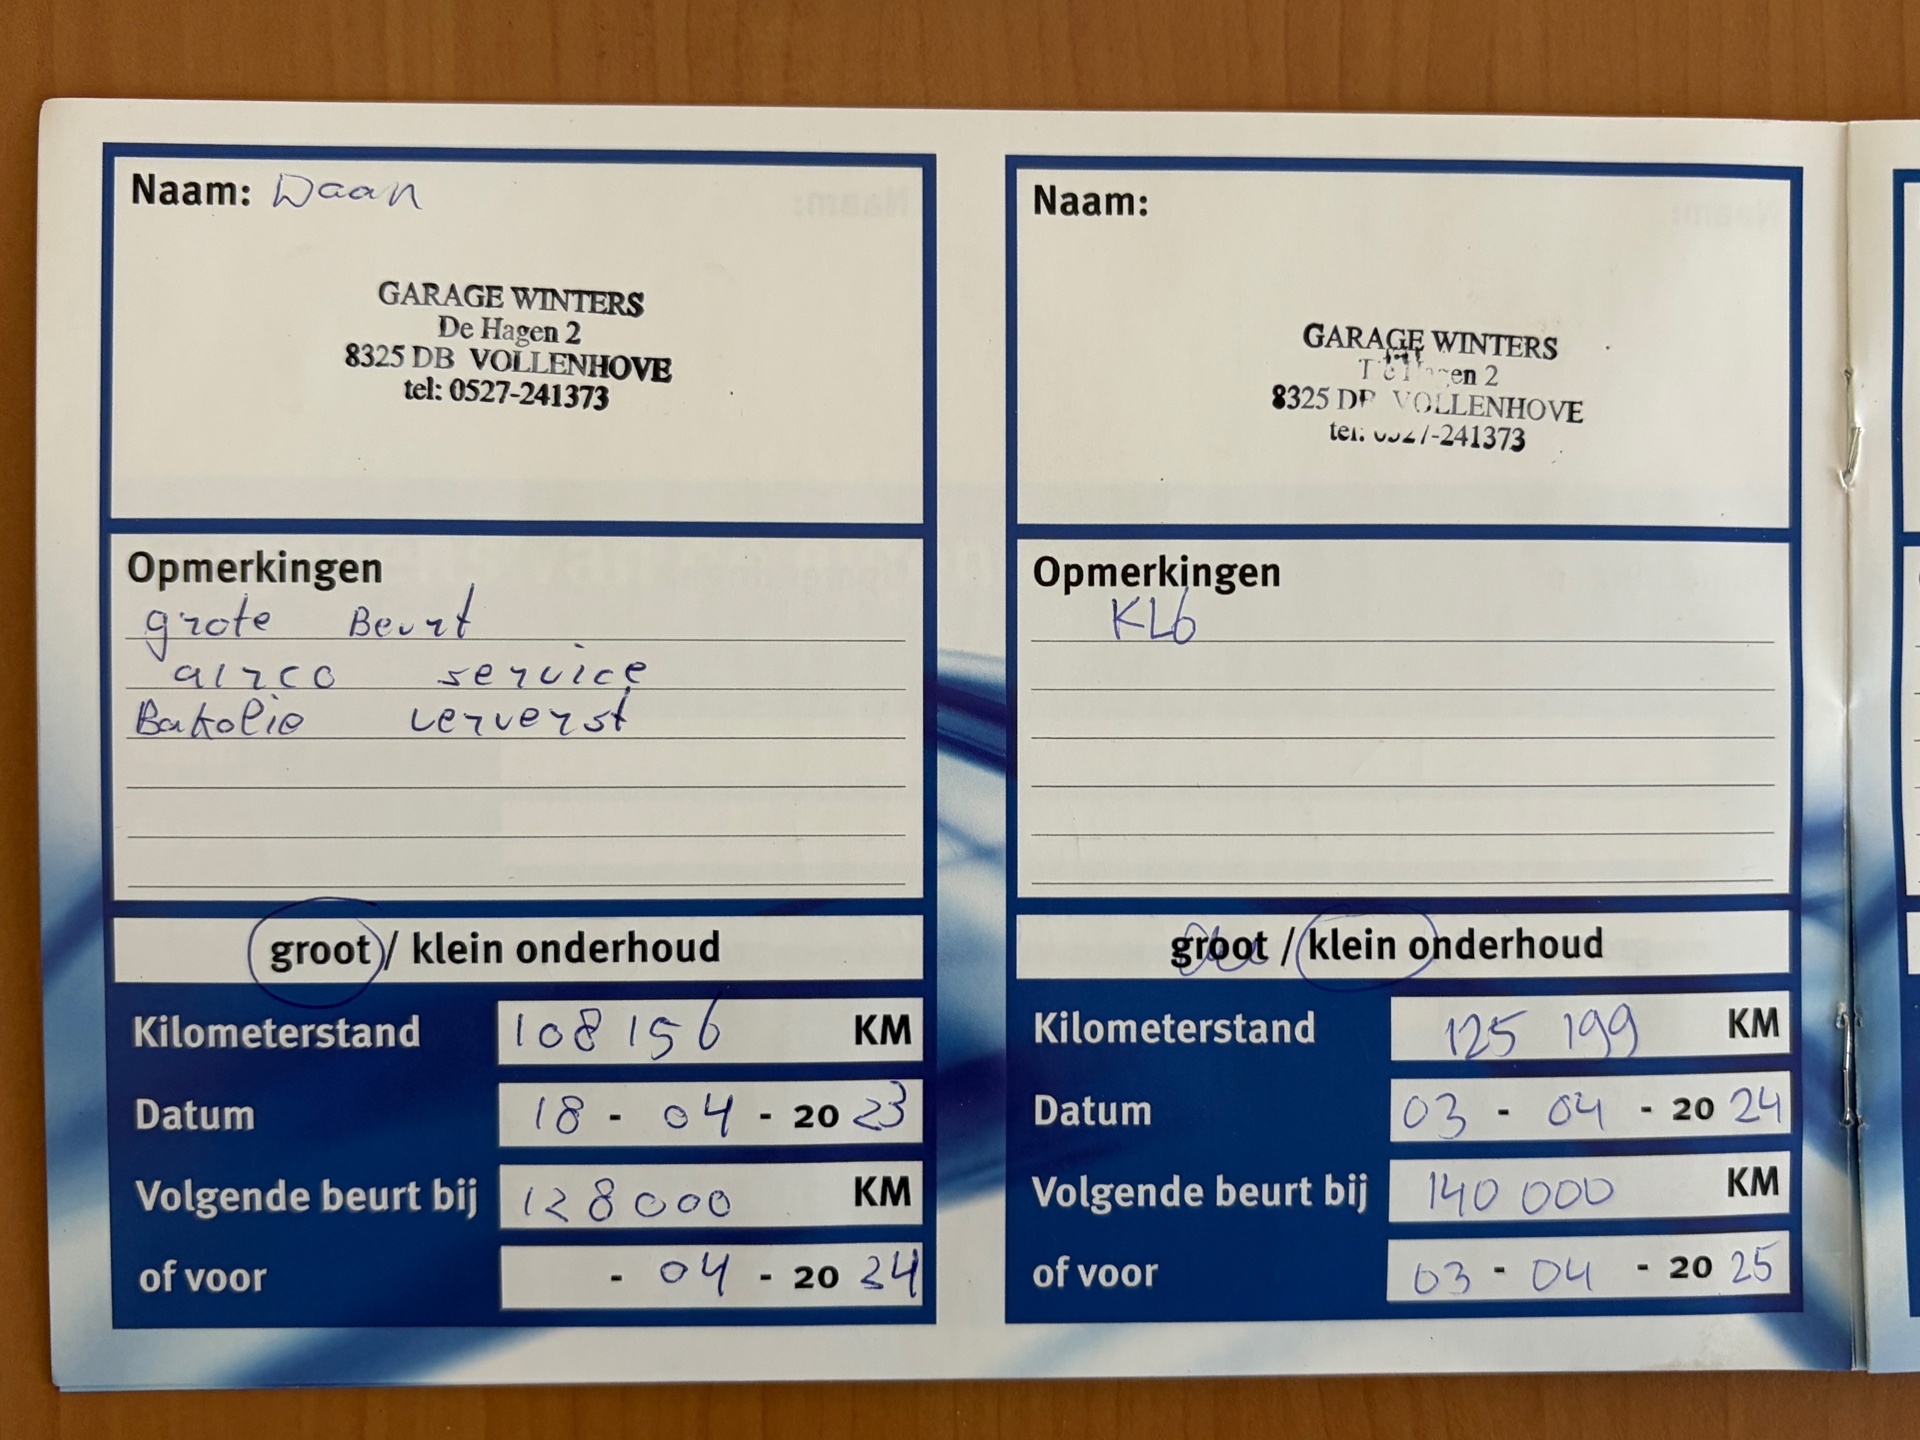 Naam: Daan
GARAGE WINTERS
De Hagen 2
8325 DB VOLLENHOVE
tel: 0527-241373
Opmerkingen
grote Beurt
airco service
Bakolie ververst
groot / klein onderhoud
Kilometerstand 108156 KM
Datum 18 - 04 - 20 23
Volgende beurt bij 128000 KM
of voor - 04 - 20 24
Naam:
GARAGE WINTERS
De Hagen 2
8325 DB VOLLENHOVE
tel: 0527-241373
Opmerkingen
KLb
groot / klein onderhoud
Kilometerstand 125 199 KM
Datum 03 - 04 - 20 24
Volgende beurt bij 140 000 KM
of voor 03 - 04 - 20 25